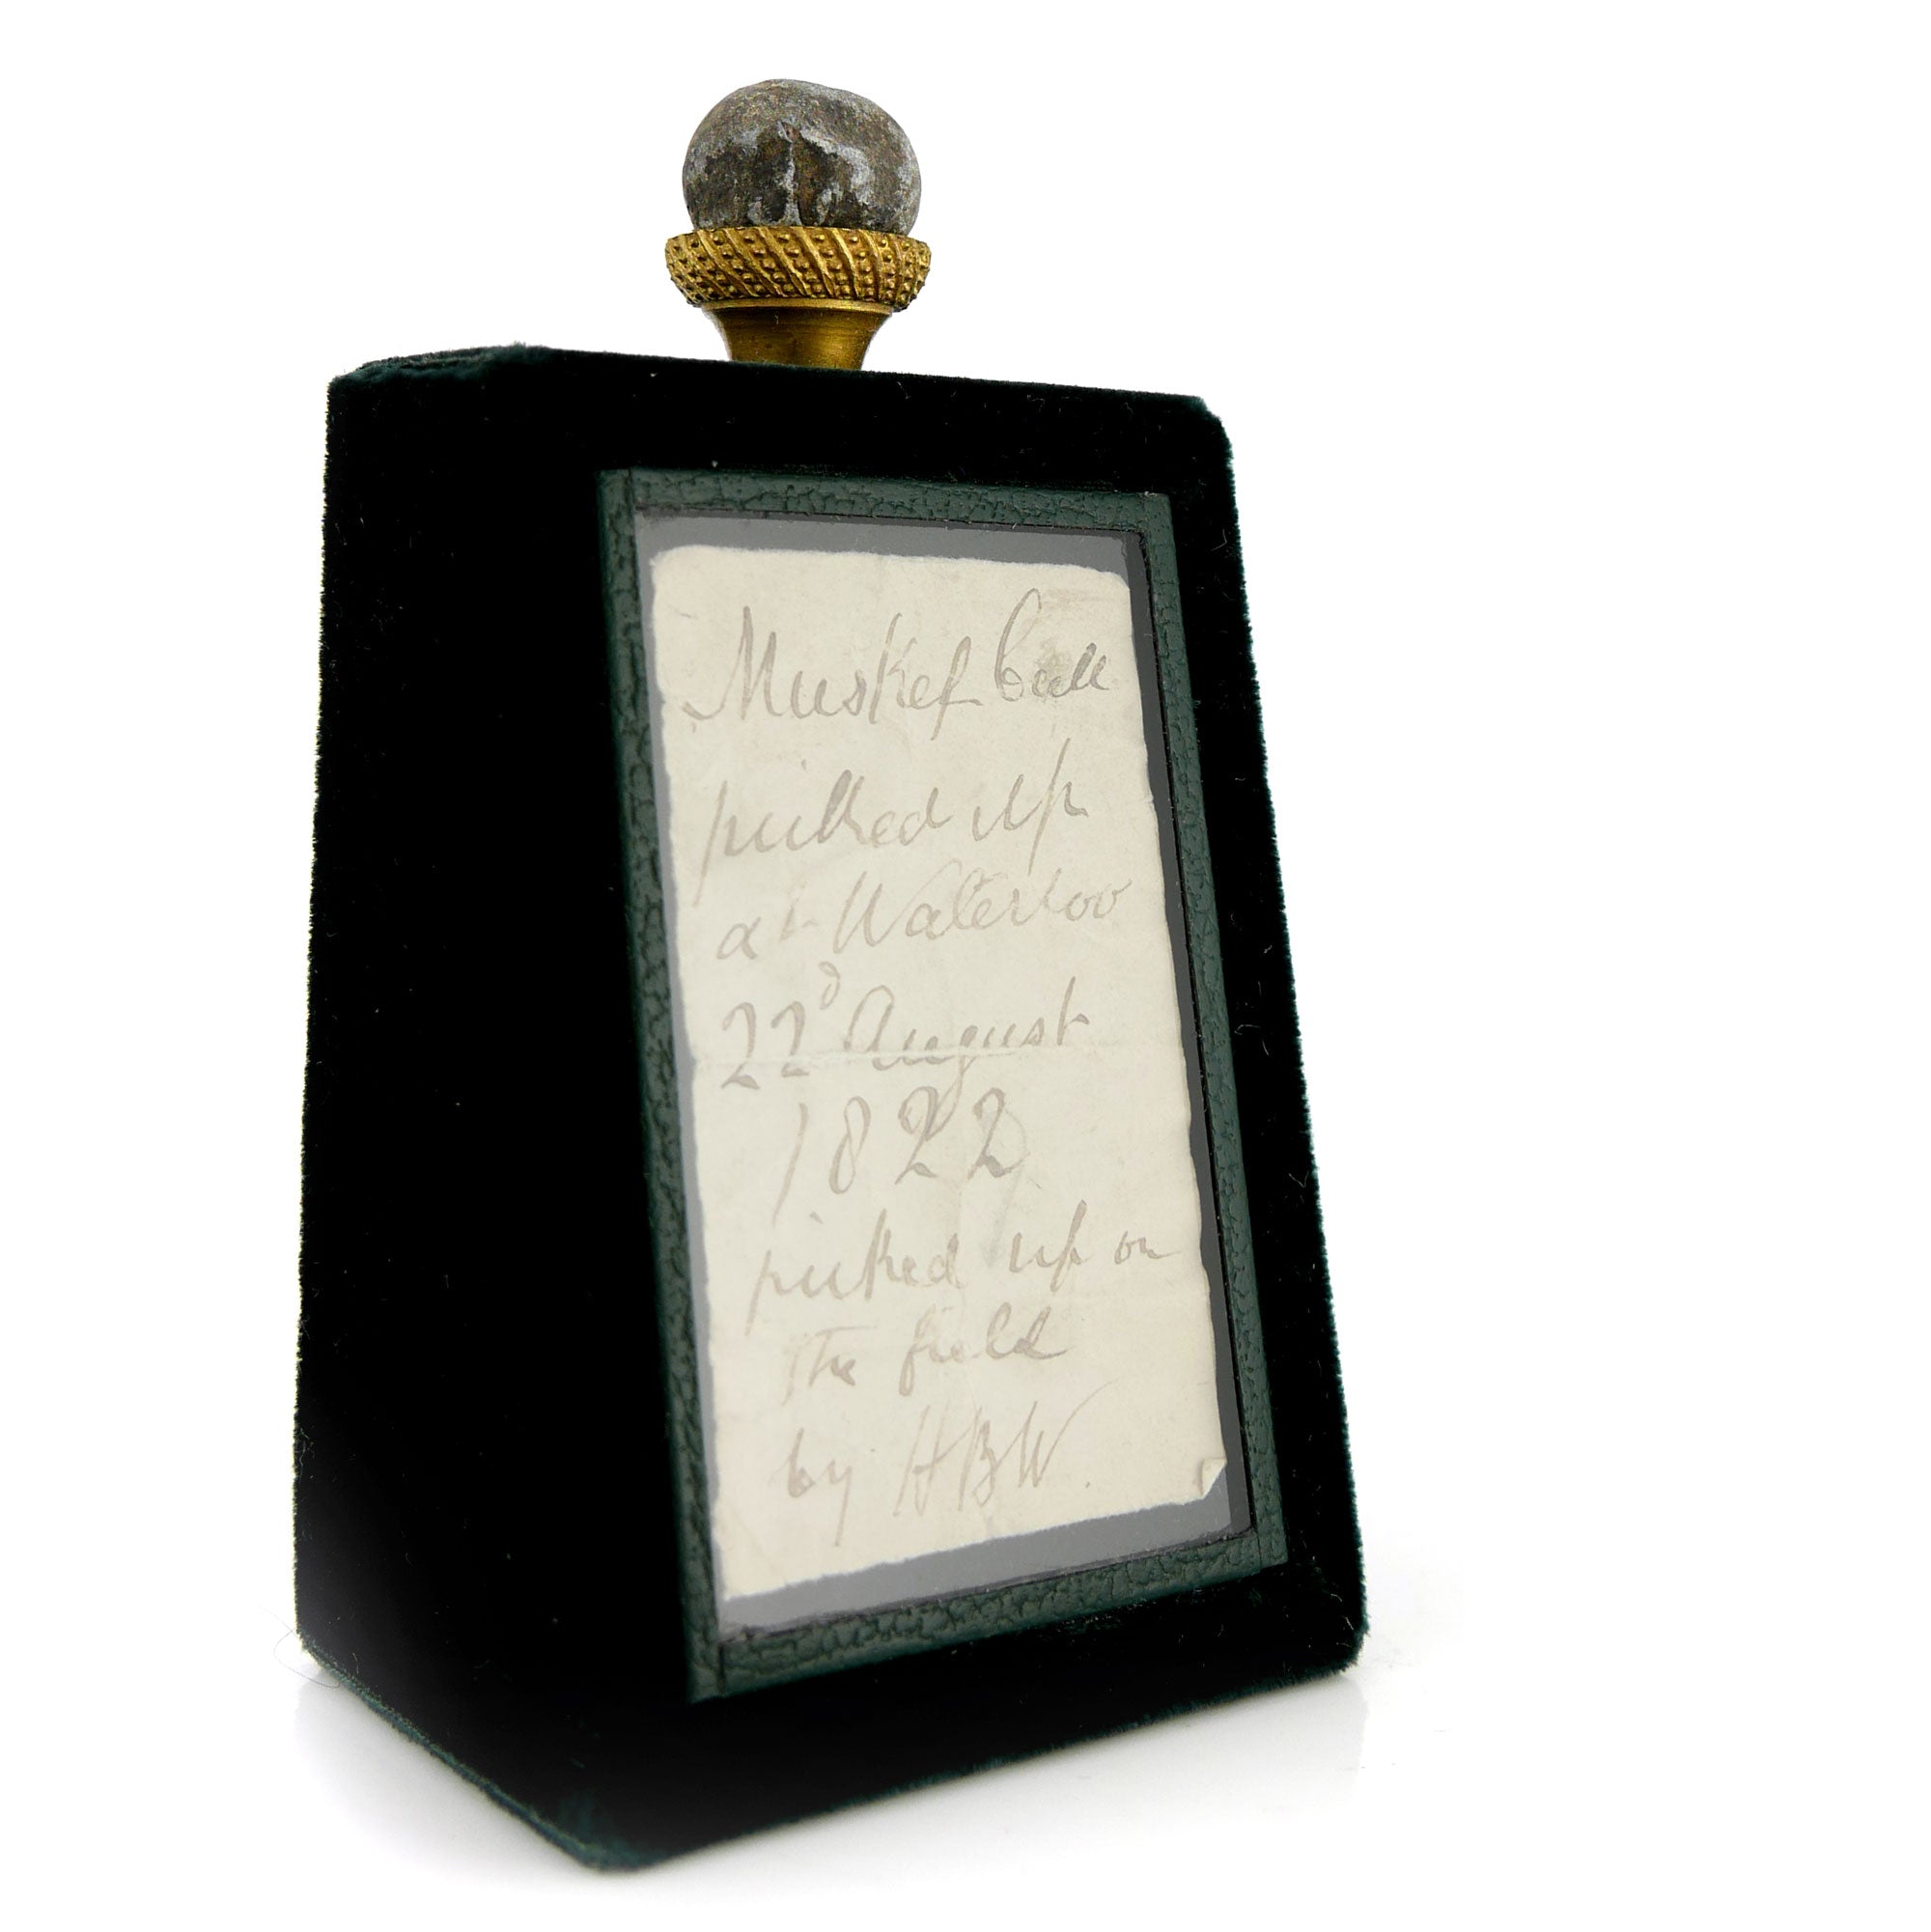 Musket ball
picked up
at Waterloo
22d August
1822
picked up on
the field
by HBW.